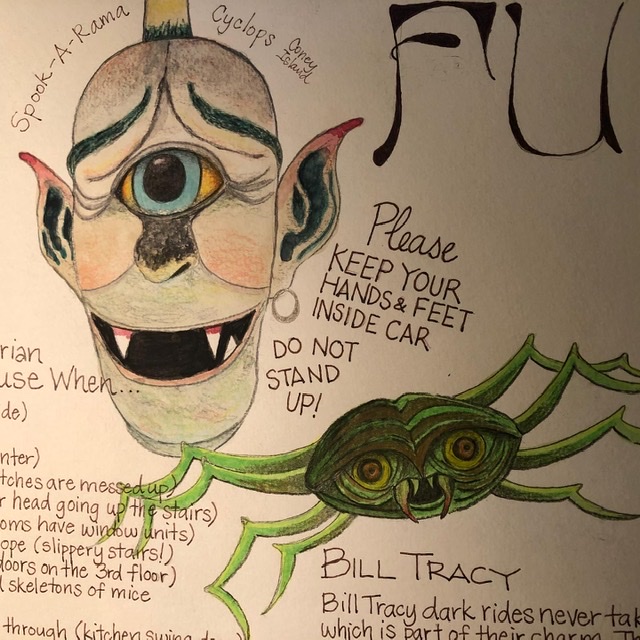 Spook-A-Rama
Cyclops
Coney
Island
FU
Please
KEEP YOUR
HANDS & FEET
INSIDE CAR
DO NOT
STAND
UP!
rian
use When...
de)
nter)
tches are messed up)
r head going up the stairs)
oms have window units)
ope (slippery stairs!)
doors on the 3rd floor)
d skeletons of mice
through (kitchen swing do
BILL TRACY
Bill Tracy dark rides never tak
which is part of their charm. T